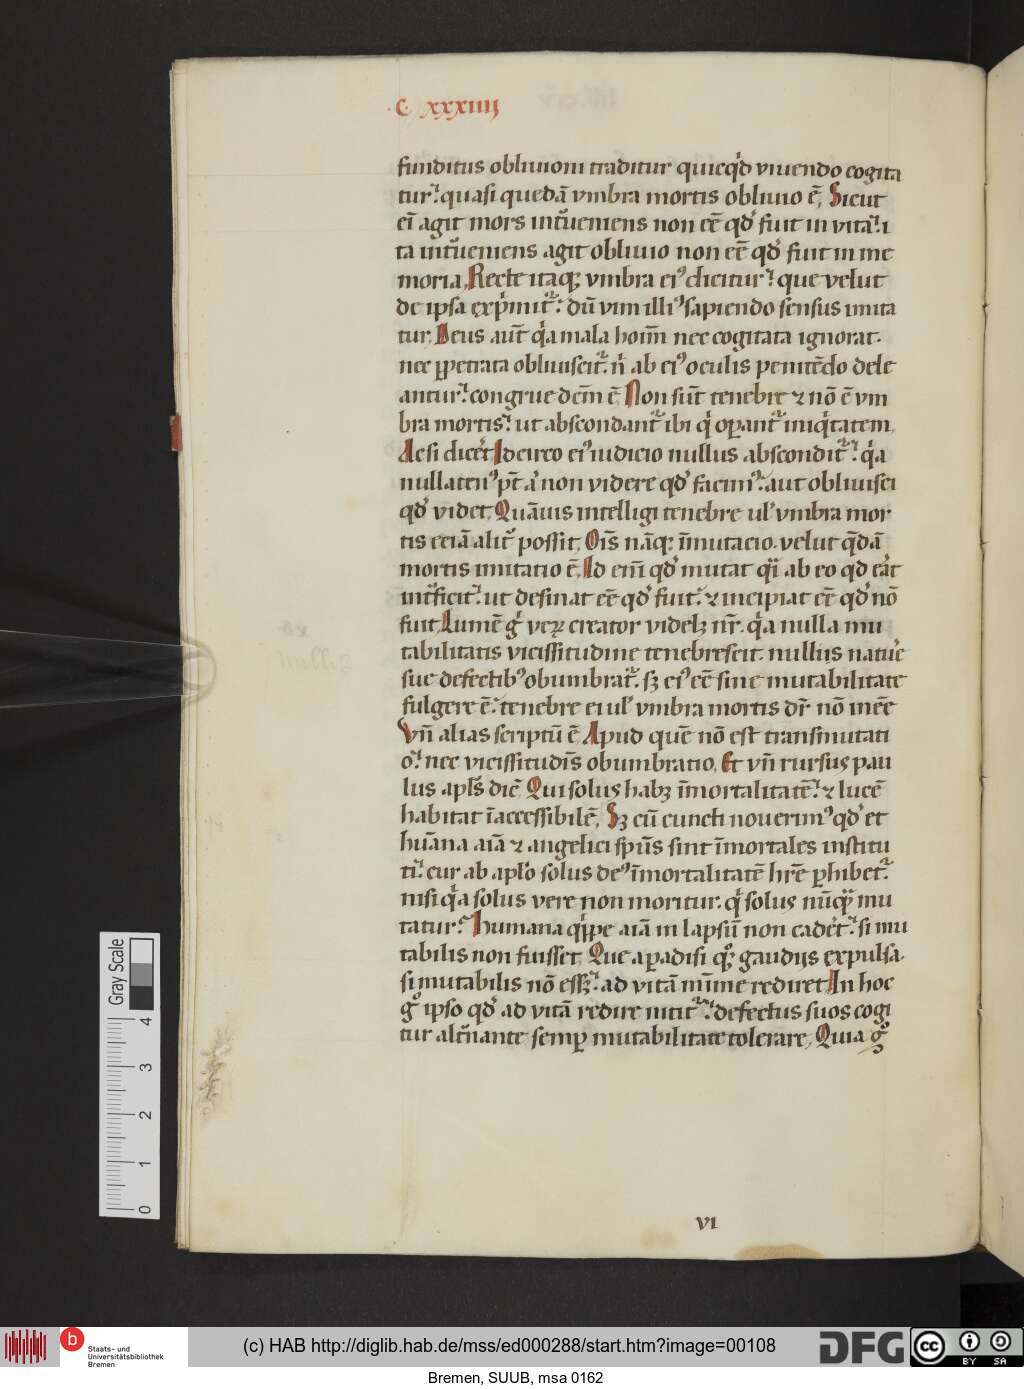 .C. xxxiiij
funditus obliuioni traditur quicq̇d viuendo cogita
tur. quasi quedā vmbra mortis obliuio ē, Sicut
eī agit mors intˀueniens non eē qd̓ fuit in vita. i
ta intˀueniens agit obliuio non eē qd̓ fuit in me
moria, Recte itaqꝫ vmbra eiꝰ dicitur. que velut
de ipsa exp̓mitᷣ. dū vim illiꝰ sapiendo sensus imita
tur, Deus aut̄ q̇a mala hoīm nec cogitata ignorat.
nec ꝑpetrata obliuiscitᷣ. n̄ ab eiꝰ oculis penitēdo dele
antur. congrue dcm̄ ē, Non sūt tenebre ⁊ nō ē vm
bra mortis. ut abscondantᷣ ibi q̇ oꝑantᷣ iniq̇tatem,
Ac si dicet̓ Idcirco eiꝰ iudicio nullus absconditᷣ. q̇a
nullatenꝰ pt̄ a non videre qd̓ facimꝰ. aut obliuisci
qd̓ videt, Quāuis intelligi tenebre ul̓ vmbra mor
tis eciā alit̓ possit, Oīs nāqꝫ īmutacio. velut q̄dā
mortis imitatio ē, Id enī qd̓ mutat q̄i ab eo qd erat
intˀficit. ut desinat eē qd̓ fuit. ⁊ incipiat eē qd̓ nō
fuit, Lumē g̓ verꝝ creator videlꝫ nr̄. q̇a nulla mu
tabilitatis vicissitudine tenebrescit. nullijs natur̓e
sue defectibꝰ obumbratᷣ. sꝫ eiꝰ eē sine mutabilitate
fulgere ē. tenebre ei ul̓ vmbra mortis dr̄ nō inēe
Vn̄ alias scriptū ē Apud quē nō est transmutati
o. nec vicissitudīs obumbratio, Et vn̄ rursus pau
lus apl̓s dic̄, Qui solus habꝫ īmortalitatē. ⁊ lucē
habitat īaccessibilē, Sꝫ cū cuncti nouerimꝰ qd̓ et
hūana aīa ⁊ angelici sp̄us sint īmortales institu
ti. cur ab apl̓o solus deꝰ īmortalitatē hr̄e ꝑhibetᷣ.
nisi q̇a solus vere non moritur. q̇ solus nūqᷓ mu
tatur. Humana q̇ppe aīa in lapsū non cadet̓. si mu
tabilis non fuisset, Que a ꝑadisi qꝫ gaudijs expulsa.
si mutabilis nō essꝫ. ad vitā mīme rediret, In hoc
g̊ ipso qd̓ ad vitā redire nititᷣ. defectus suos cogi
tur altn̓ante semꝑ mutabilitate tolerare, Quia g̊
VI
Gray Scale
4
3
2
1
0
b Staats- und
Universitätsbibliothek
Bremen
(c) HAB http://diglib.hab.de/mss/ed000288/start.htm?image=00108
DFG
cc BY SA
Bremen, SUUB, msa 0162